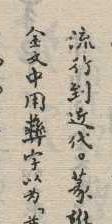 流行到近代。篆
金文中用彝字以为